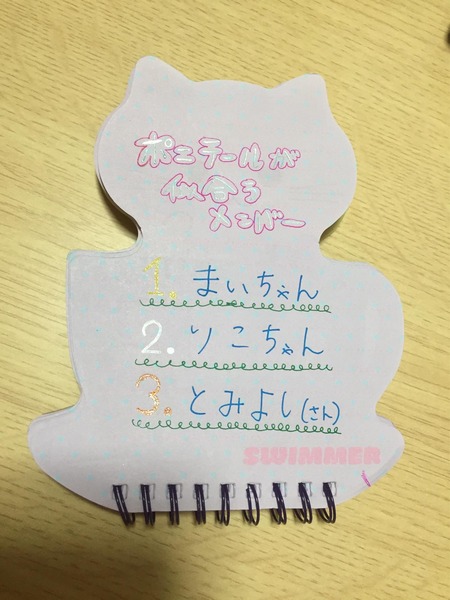 ポニテールが
似合う
メンバー
1. まいちゃん
2. りこちゃん
3. とみよし(さん)
SWIMMER